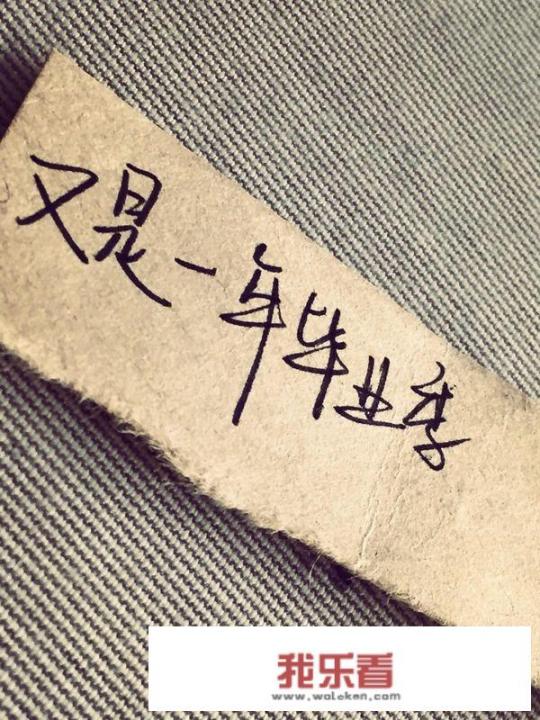 又是一年毕业季
我乐看
www.woleken.com